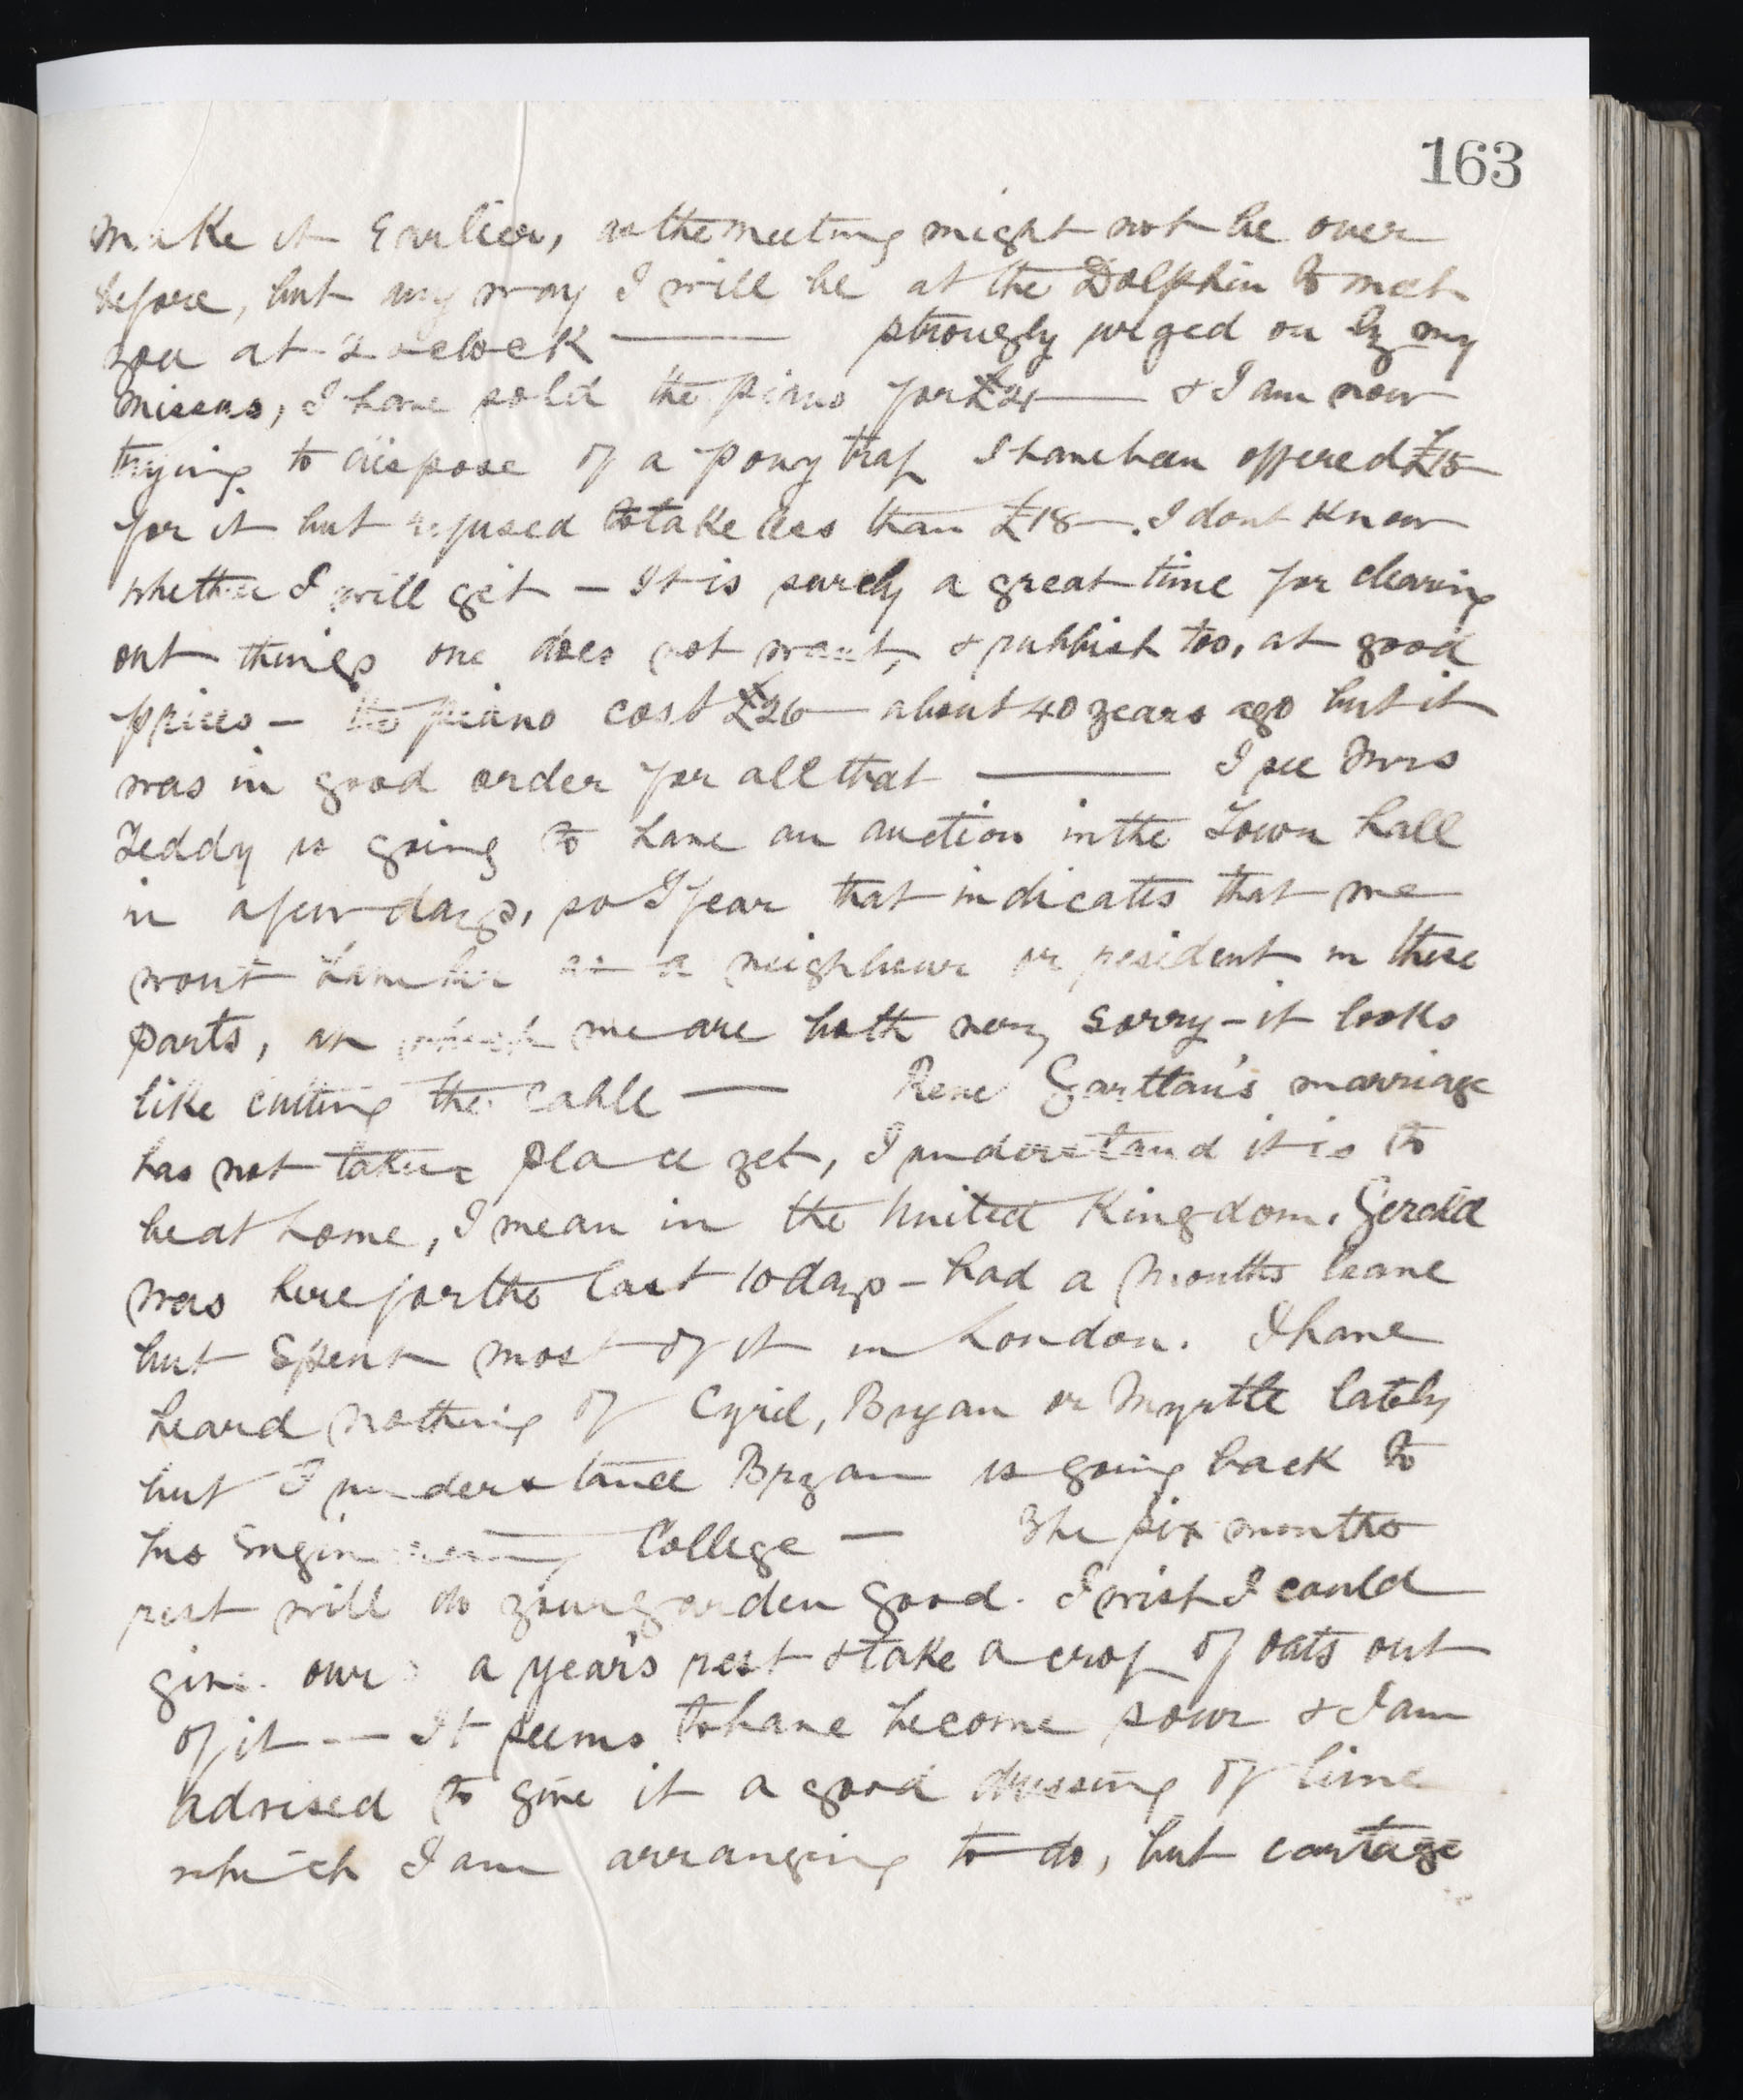 163
make it Earlier, as the meeting might not be over
before, but any way I will be at the Dolphin to meet
you at 2 oclock — strongly urged on by my
missus, I have sold the piano for £21 — & I am now
trying to dispose of a pony trap I have been offered £15
for it but refused to take less than £18 —. I dont know
whether I will get — It is surely a great time for clearing
out things one does not want, & rubbish too, at good
prices — the piano cost £26 — about 40 years ago but it
was in good order for all that — I see Mrs
Teddy is going to have an auction in the Town hall
in a few days, so I fear that indicates that we
wont have her as a neighbour or resident in these
parts, at which we are both very sorry — it looks
like cutting the cable — Rene Garttan's marriage
has not taken place yet, I understand it is to
be at home, I mean in the United Kingdom. Gerald
was here for the last 10 days — had a months leave
but spent most of it in London. I have
heard nothing of Cyril, Bryan or Myrtle lately
but I understand Bryan is going back to
his Engineering College — The six months
rest will do your garden good. I wish I could
give ours a year's rest & take a crop of oats out
of it — It seems to have become sour & I am
advised to give it a good dressing of lime
which I am arranging to do, but cartage